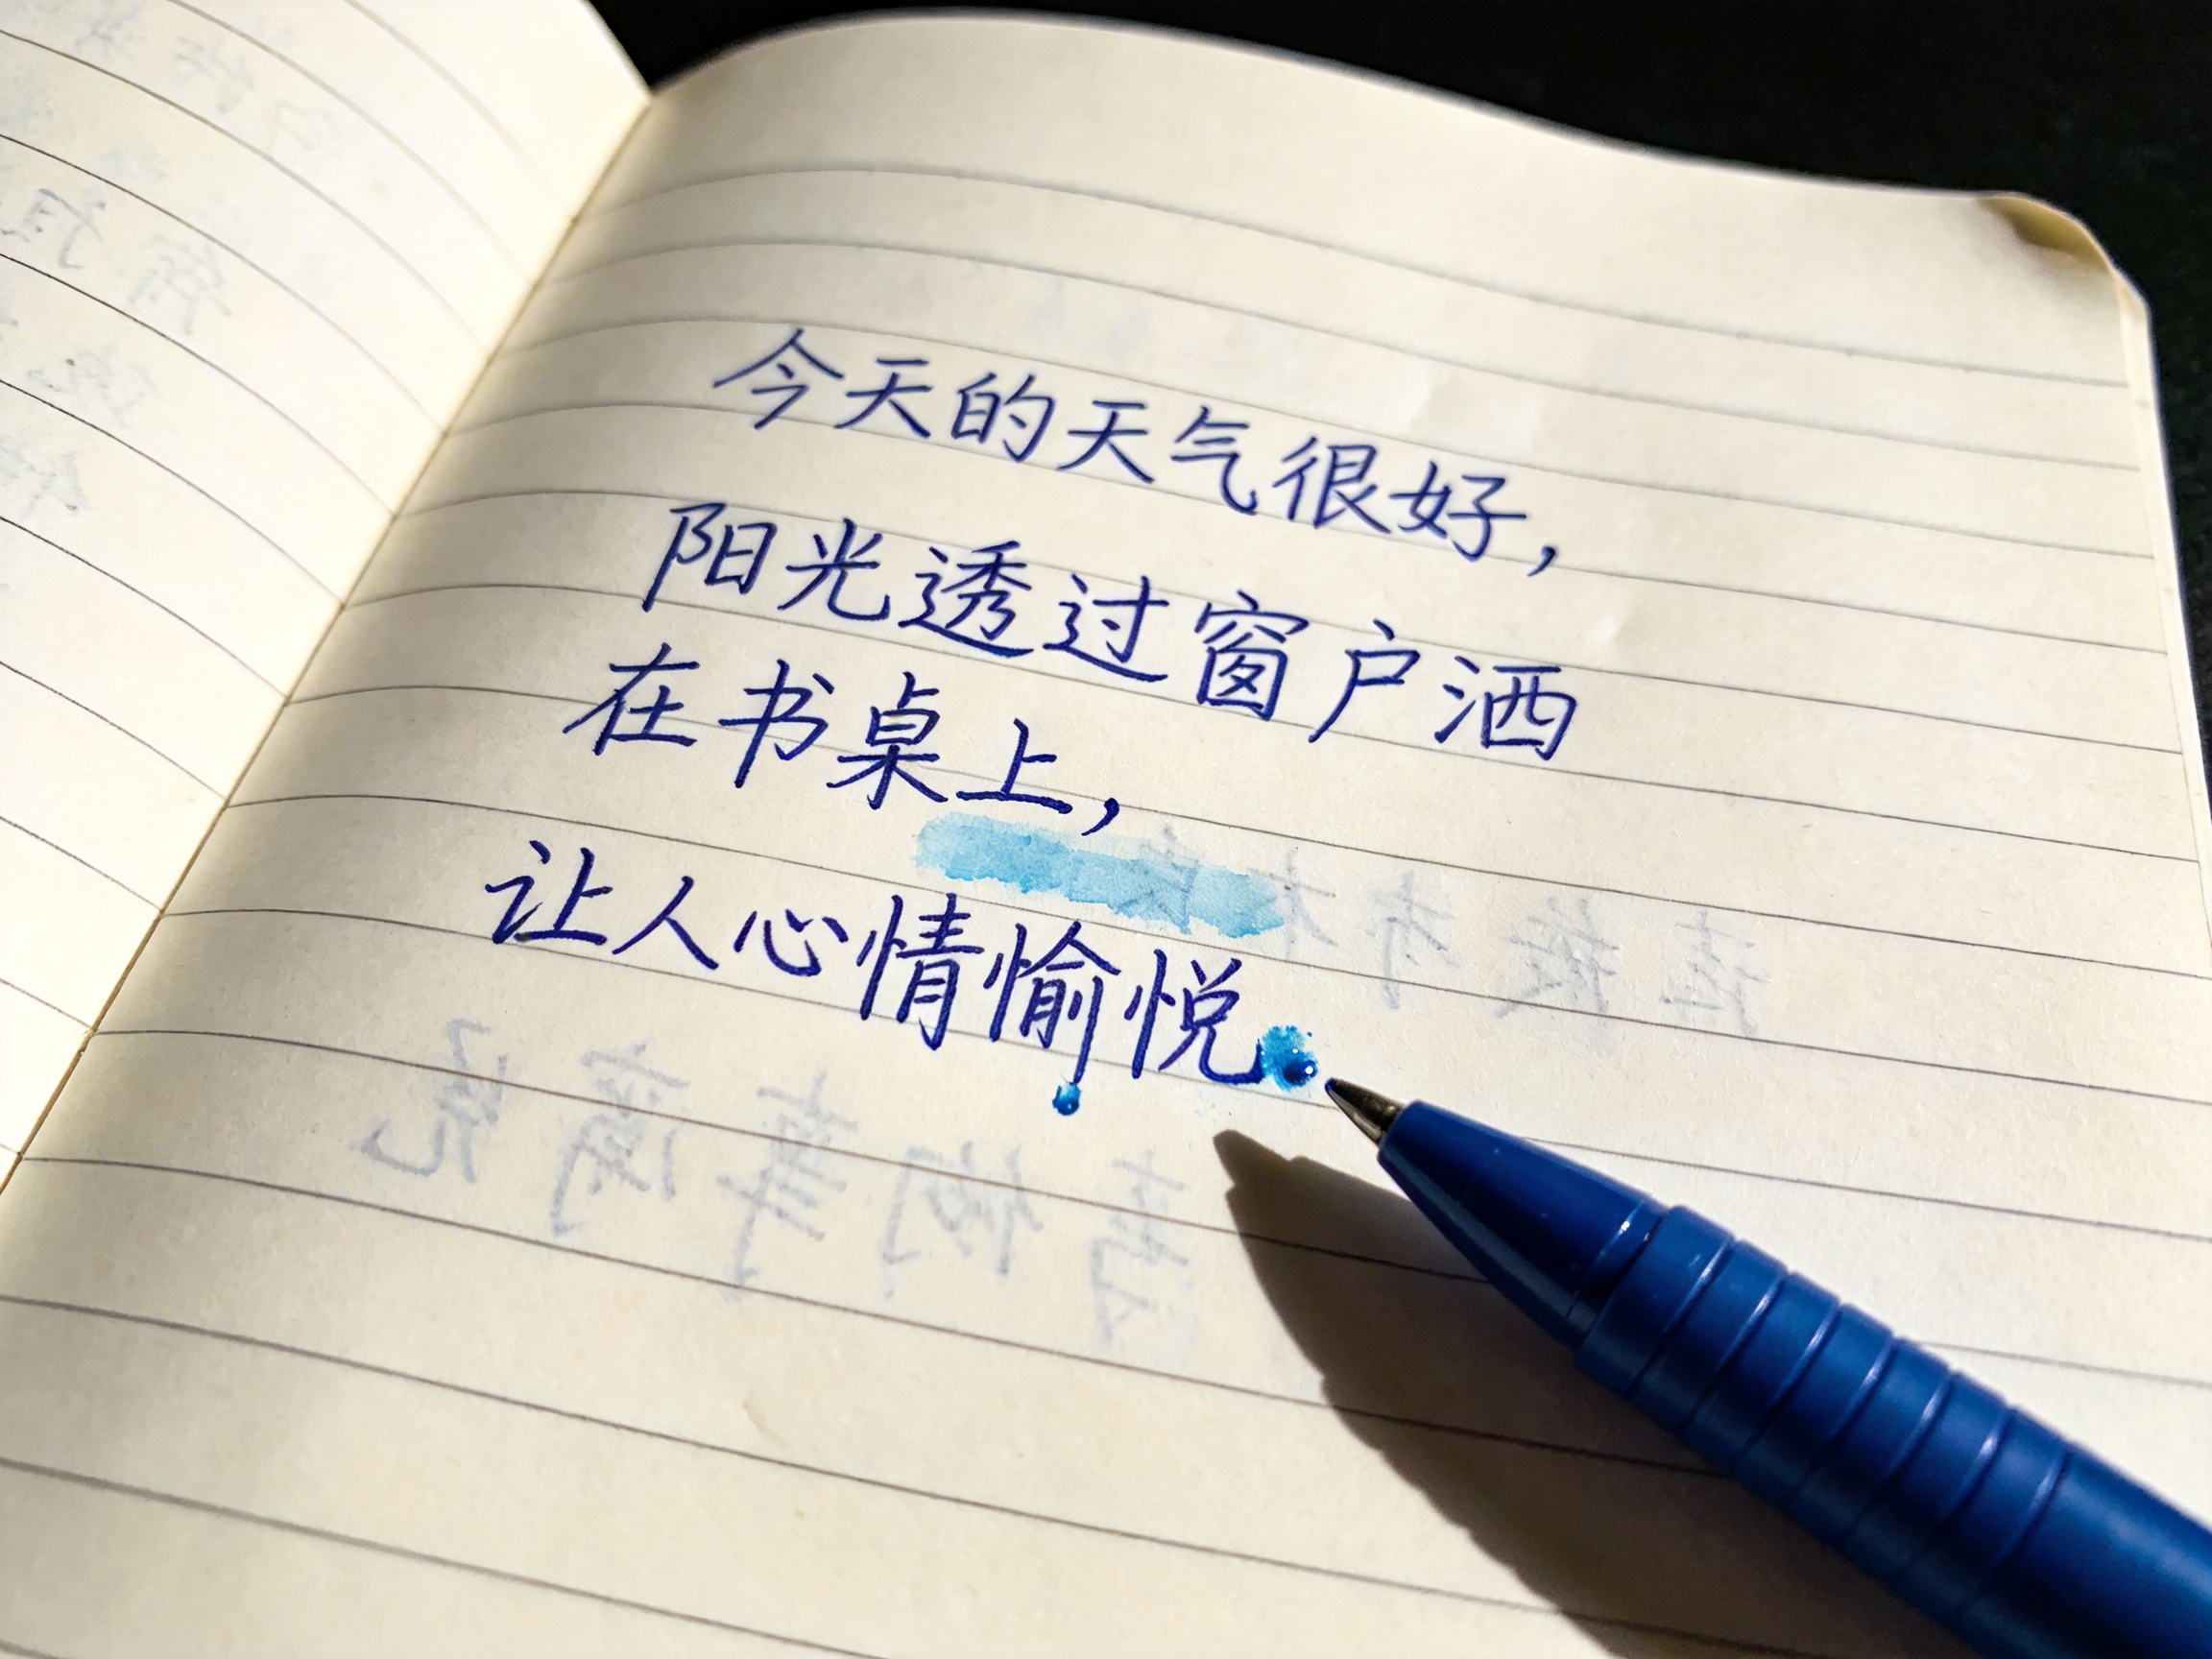 今天的天气很好，
阳光透过窗户洒
在书桌上，
让人心情愉悦。